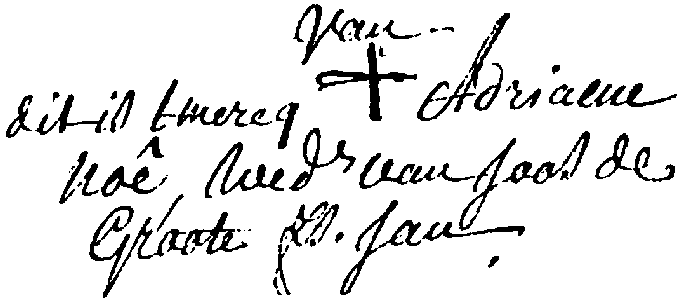 van
dit is tmercq + Adriaene
Noê, wedr van Joos de
Groote fs. Jan.